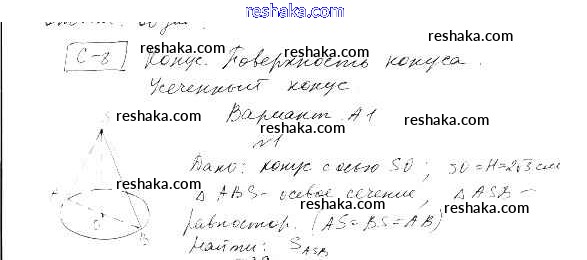 reshaka.com
С-8 Конус. Поверхность конуса.
Усеченный конус
Вариант А1
№1
Дано: конус с осью SO; SO=H=2√3 см
△ ABS - осевое сечение, △ ASB -
равностор. (AS=BS=AB)
Найти: S_ASB
S
A
O
B
reshaka.com
reshaka.com
reshaka.com
reshaka.com
reshaka.com
reshaka.com
reshaka.com
reshaka.com
reshaka.com
reshaka.com
reshaka.com
reshaka.com